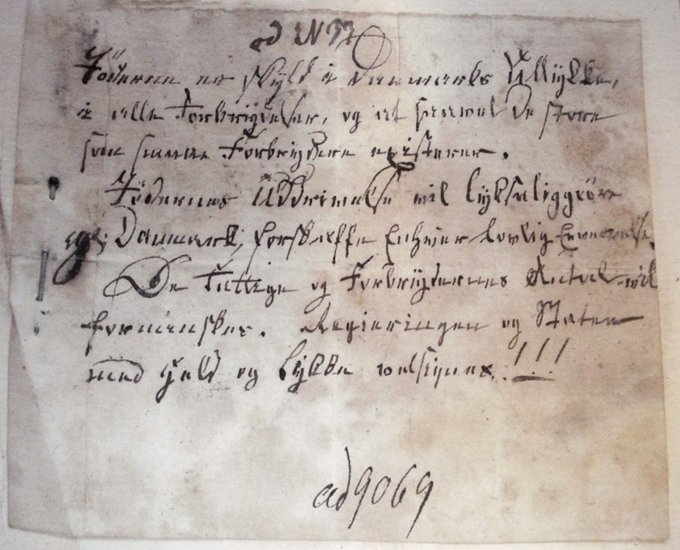 ad N 37
Jöderne er skyld i Danmarks Ullykke,
i alle Forbrydelser, og at saavel de store
som smaae Forbrydere existerer.
Jödernes Uddrivelse vil lyksaliggiöre
Danmark, forskaffe Enhver lovlig Erhvervelse.
De Fattige og Forbrydernes Antal vil
formindskes. Regieringen og Staten
med Held og Lykke velsignes!!!
ad 9069